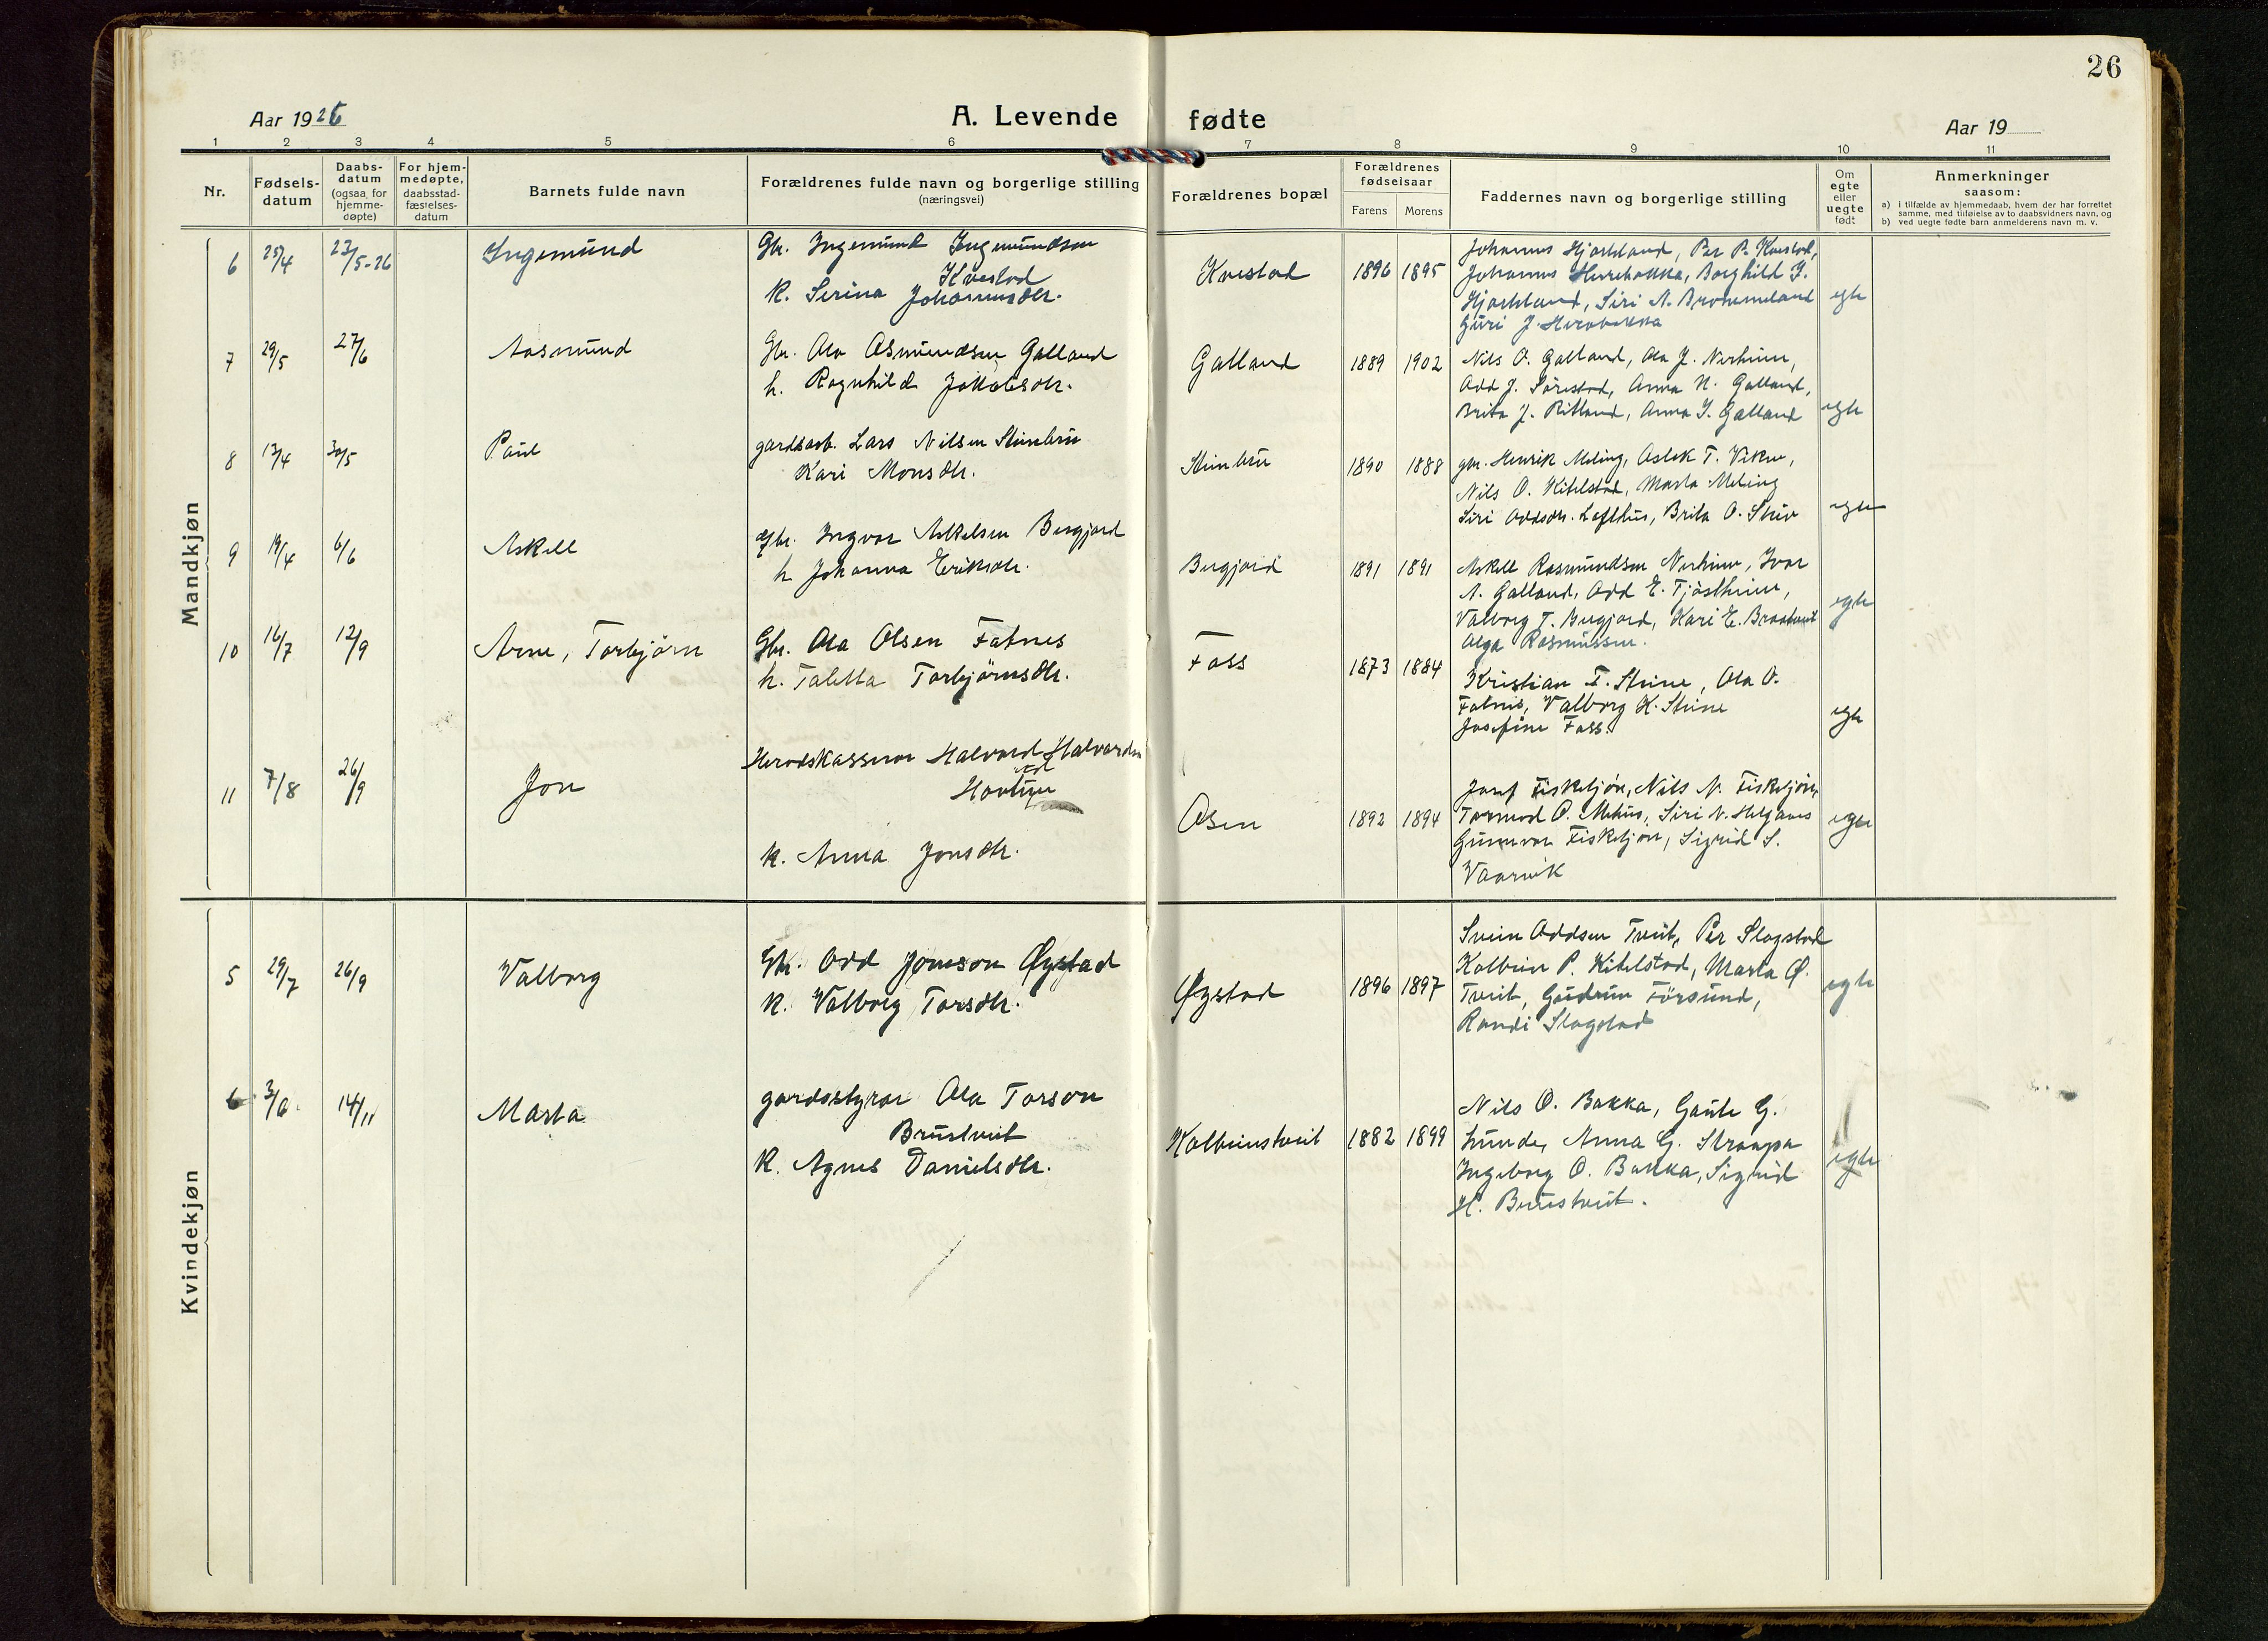 26
Aar 1926
A. Levende fødte
Aar 19
1 2 3 4 5 6 7 8 9 10 11
Nr.
Fødsels-
datum
Daabs-
datum
(ogsaa for
hjemme-
døpte)
For hjem-
medøpte,
daabsstad-
fæstelses-
datum
Barnets fulde navn
Forældrenes fulde navn og borgerlige stilling
(næringsvei)
Forældrenes bopæl
Forældrenes
fødselsaar
Farens Morens
Faddernes navn og borgerlige stilling
Om
egte
eller
uegte
født
Anmerkninger
saasom:
a) i tilfælde av hjemmedaab, hvem der har forrettet
samme, med tilføielse av to daabsvidners navn, og
b) ved uegte fødte barn anmelderens navn m. v.
Mandkjøn
6 25/4 23/5-26 Ingemund
Gbr. Ingemund Ingemundsen
Kvestad
K. Serina Johannesdtr.
Kvestad 1896 1895
Johannes Hjorteland, Per P. Kvestad,
Johannes Herabakka, Borghild J.
Hjorteland, Siri N. Brommeland
Guri J. Herabakka
egte
7 29/5 27/6 Aasmund
Gbr. Ola Osmundsen Galland
h. Ragnhild Jakobsdtr.
Galland 1889 1902
Nils O. Galland, Ola J. Nerheim,
Odd J. Sørestad, Anna N. Galland,
Brita J. Ritland, Anna I. Galland
egte
8 13/4 30/5 Paul
gardsarb. Lars Nilsen Steinbru
Kari Monsdtr.
Steinbru 1890 1888
gbr. Henrik Meling, Aslak T. Vikse,
Nils O. Kitelstad, Marta Meling
Siri Oddsdtr. Lofthus, Brita O.
egte
9 19/4 6/6 Askell
Gbr. Ingvar Askelsen Bergjord
h. Johanna Eriksdtr.
Bergjord 1891 1891
Askell Rasmundsen Nerheim, Ivar
N. Galland, Odd E. Tjøstheim,
Valborg T. Bergjord, Kari E. Braatveit
Olga Rasmussen.
egte
10 16/7 12/9 Arne, Torbjørn
Gbr. Ola Olsen Fatnes
h. Taletta Torbjørnsdtr.
Foss 1873 1884
Kristian T. Steine, Ola O.
Fatnes, Valborg K. Steine
Josefine Foss.
egte
11 7/8 26/9 Jon
Heradskasserar Halvard Halvardsen
K. Anna Jonsdtr.
Osen 1892 1894
Josef Fisketjøn, Nils N. Fisketjøn,
Tormod O. Mehus, Siri N. Helganes
Gunnvor Fisketjøn, Sigrid S.
Vaarvik
egte
Kvindekjøn
5 29/7 26/9 Valborg
Gbr. Odd Jonsson Øystad
K. Valborg Torsdtr.
Øystad 1896 1897
Svein Oddsen Tveit, Per Slogstad
Kolbein P. Kitelstad, Marta Ø.
Tveit, Gudrun Førsund,
Randi Slogstad
egte
6 3/6 14/11 Marta
gardsstyrar Ola Torson
Brustveit
K. Agnes Danielsdtr.
Kolbeinstveit 1882 1899
Nils O. Bakka, Gaute G.
Lunde, Anna G. Straapa
Ingeborg O. Bakka, Sigrid
H. Brustveit.
egte